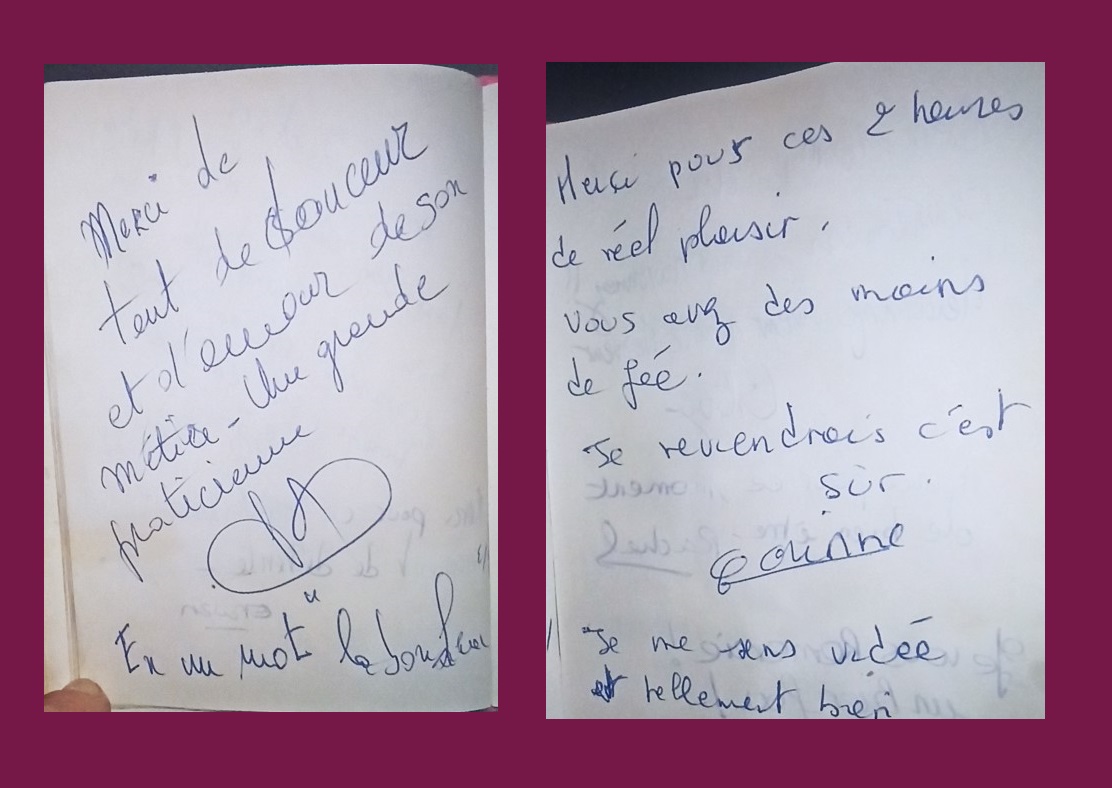 Merci de
tant de douceur
et d'amour de son
métier - Une grande
praticienne
En un mot "le bonheur
Merci pour ces 2 heures
de réel plaisir.
Vous avez des mains
de fée.
Je reviendrais c'est
sûr.
Corinne
Je me sens vidée
et tellement bien